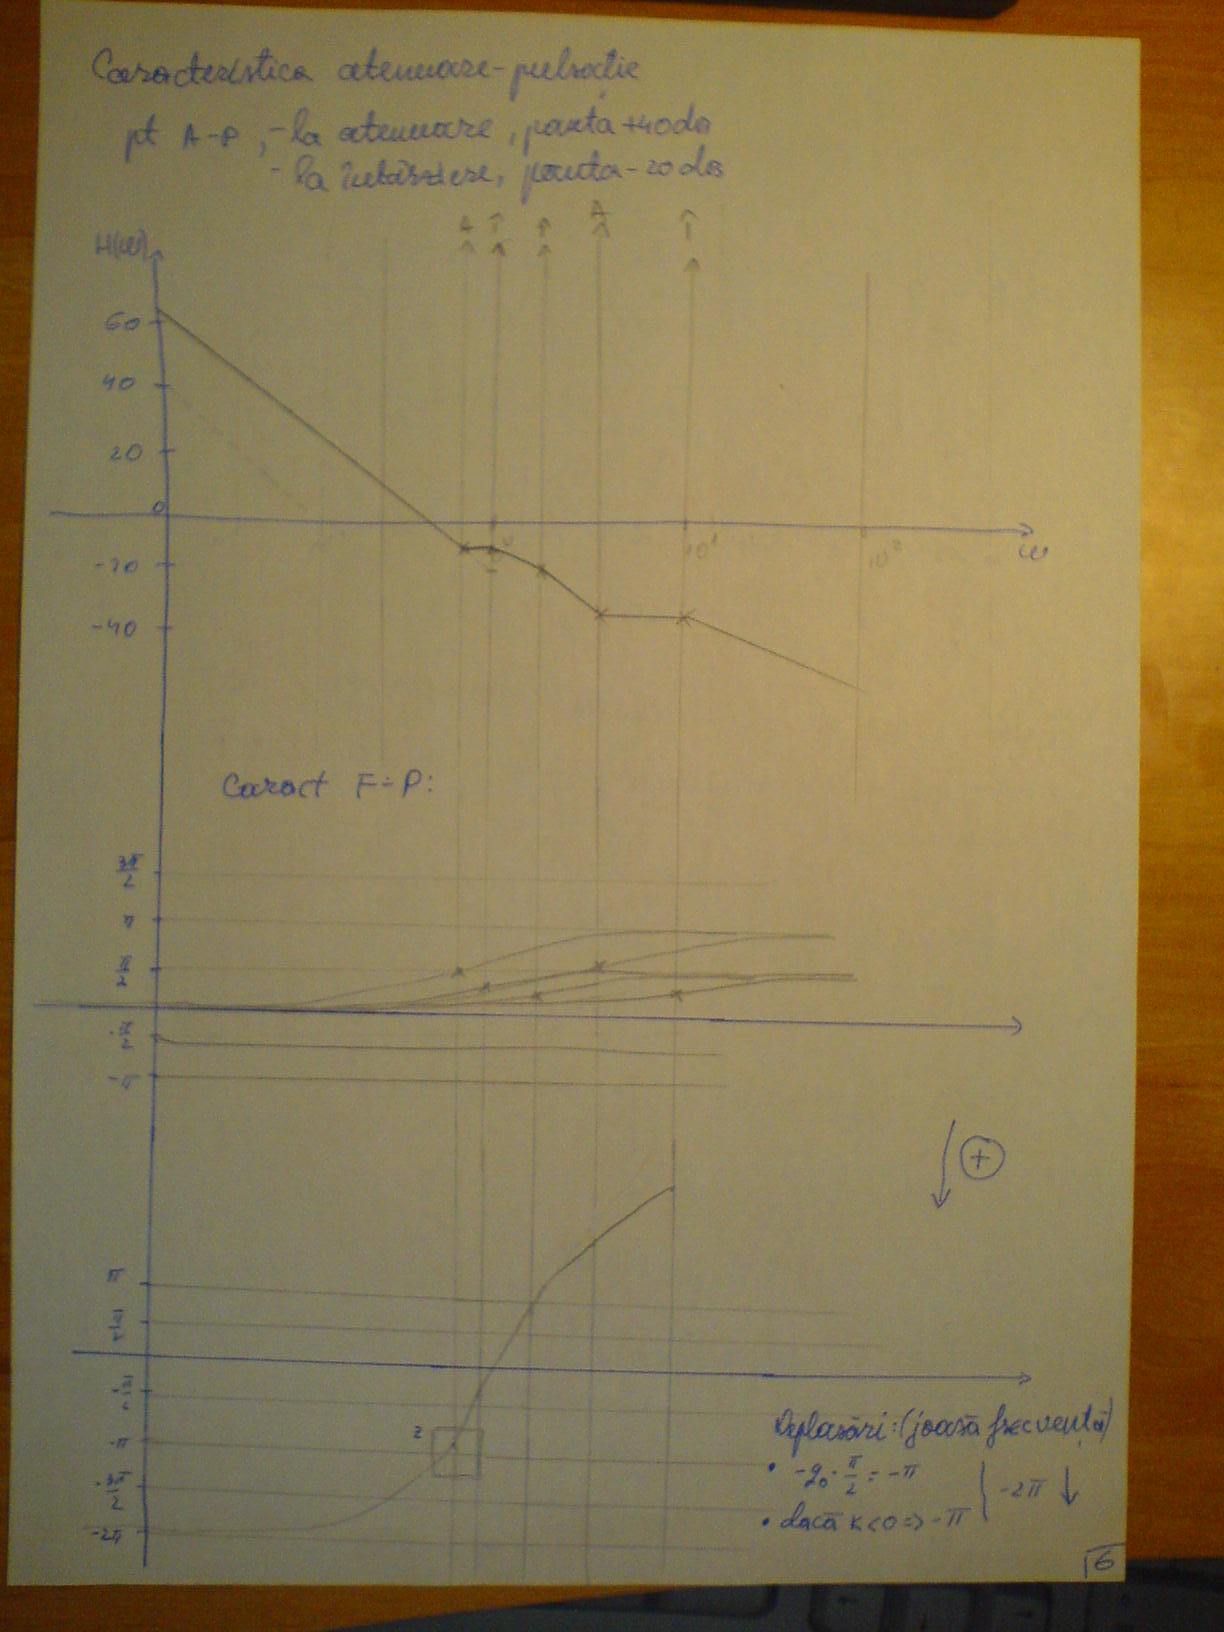 Caracteristica atenuare-pulsatie
pt A-P, - la atenuare, panta +40dB
- la întârziere, panta -20dB
A Î Î A Î
H(ω)
60
40
20
0
10⁰ 10¹ 10²
ω
-20
-40
Caract F-P:
3π/2
π
π/2
-π/2
-π
+
π
π/2
-π/2
-π
-3π/2
-2π
2
Deplasări: (joasă frecventă)
• -g₀·π/2 = -π
-2π ↓
• dacă K<0 => -π
6